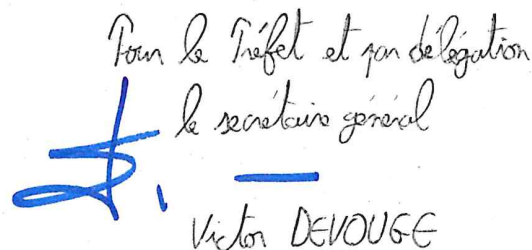 Pour le Préfet et par délégation
le secrétaire général
Victor DEVOUGE